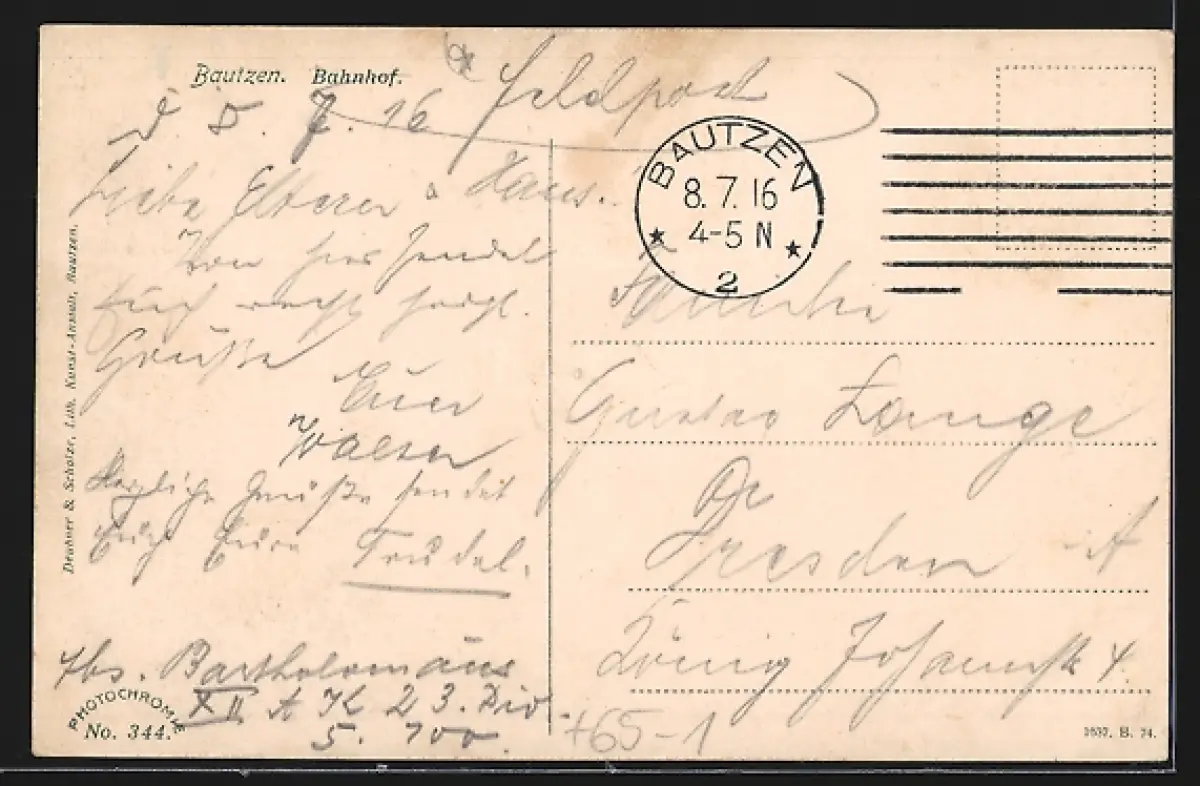 Bautzen. Bahnhof.
Feldpost
d 5. 7. 16
Liebe Eltern u Hans.
Von hier sendet
Euch recht herzl.
Grüße
Euer
Walter
Herzliche Grüße sendet
Euch Eure Trudel.
Abs. Bartholomäus
XII A K 23. Div.
5. 700.
PHOTOCHROMIE
No. 344.
Deubner & Scholze, Lith. Kunst-Anstalt, Bautzen.
BAUTZEN
8. 7. 16
4-5 N
2
Familie
Gustav Lange
Dresden A
König Johannstr 4.
+65-1
1637. B. 74.